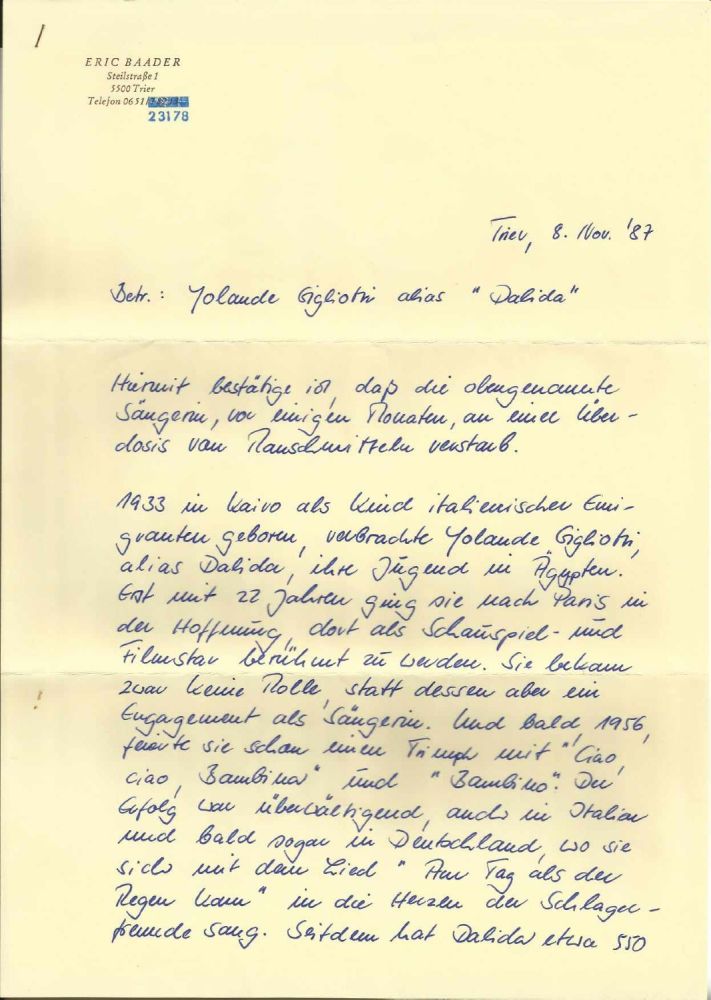 ERIC BAADER
Steilstraße 1
5500 Trier
Telefon 0651/
23178
Trier, 8. Nov. '87
Betr.: Yolande Gigliotti alias "Dalida"
Hiermit bestätige ich, daß die obengenannte
Sängerin, vor einigen Monaten, an einer Über-
dosis von Rauschmitteln verstarb.
1933 in Kairo als Kind italienischer Emi-
granten geboren, verbrachte Yolande Gigliotti,
alias Dalida, ihre Jugend in Ägypten.
Erst mit 22 Jahren ging sie nach Paris in
der Hoffnung, dort als Schauspiel- und
Filmstar berühmt zu werden. Sie bekam
zwar keine Rolle, statt dessen aber ein
Engagement als Sängerin. Und bald, 1956,
feierte sie schon einen Triumph mit "Ciao,
ciao, Bambina" und "Bambino". Der
Erfolg war überwältigend, auch in Italien
und bald sogar in Deutschland, wo sie
sich mit dem Lied "Am Tag als der
Regen kam" in die Herzen der Schlager-
freunde sang. Seitdem hat Dalida etwa 550